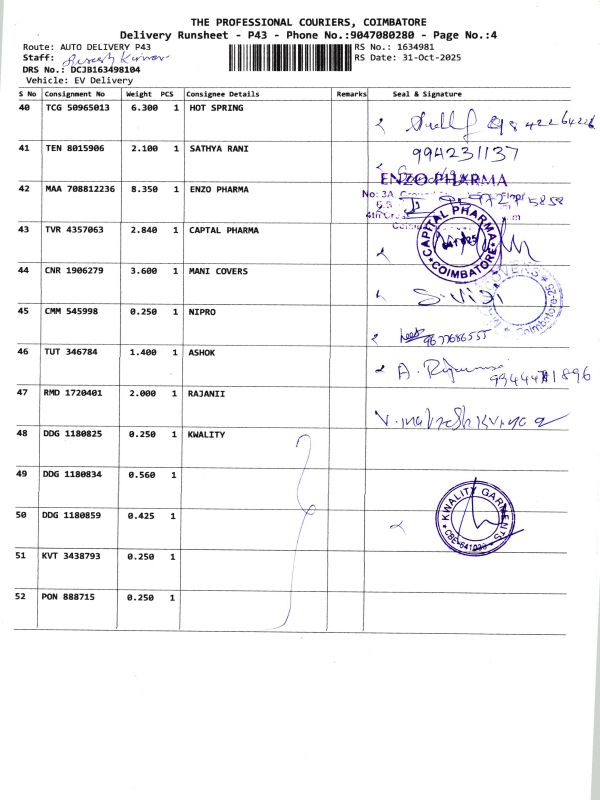 THE PROFESSIONAL COURIERS, COIMBATORE
Delivery Runsheet - P43 - Phone No.:9047080280 - Page No.:4
Route: AUTO DELIVERY P43
RS No.: 1634981
Staff: Suresh Kumar
RS Date: 31-Oct-2025
DRS No.: DCJB163498104
Vehicle: EV Delivery
S No Consignment No Weight PCS Consignee Details Remarks Seal & Signature
40 TCG 50965013 6.300 1 HOT SPRING
41 TEN 8015906 2.100 1 SATHYA RANI 994231137
42 MAA 708812236 8.350 1 ENZO PHARMA ENZO PHARMA
No: 3A
4th Cross
43 TVR 4357063 2.840 1 CAPTAL PHARMA CAPITAL PHARMA COIMBATORE
44 CNR 1906279 3.600 1 MANI COVERS S. Viji Coimbatore-25
45 CMM 545998 0.250 1 NIPRO 9677686555
46 TUT 346784 1.400 1 ASHOK A.
47 RMD 1720401 2.000 1 RAJANII
48 DDG 1180825 0.250 1 KWALITY
49 DDG 1180834 0.560 1
50 DDG 1180859 0.425 1 KWALITY GARMENTS
51 KVT 3438793 0.250 1
52 PON 888715 0.250 1